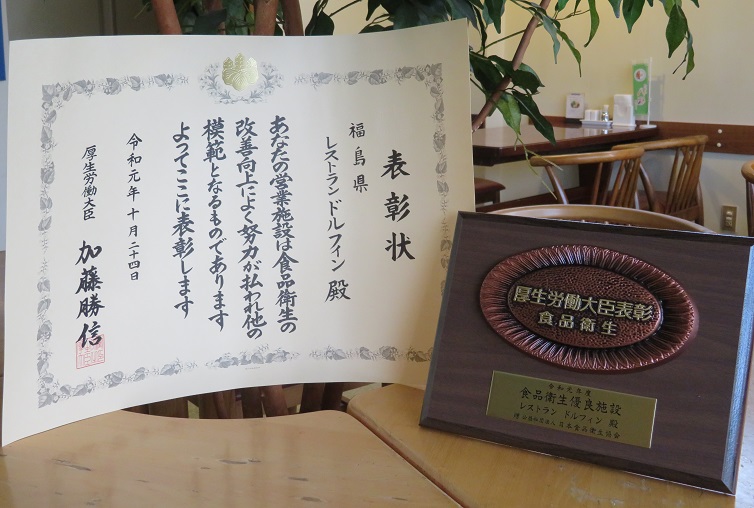 表彰状
福島県
レストランドルフィン殿
あなたの営業施設は食品衛生の
改善向上によく努力が払われ他の
模範となるものであります
よってここに表彰します
令和元年十月二十四日
厚生労働大臣 加藤勝信
厚生労働大臣表彰
食品衛生
令和元年度
食品衛生優良施設
レストラン ドルフィン 殿
日本食品衛生協会